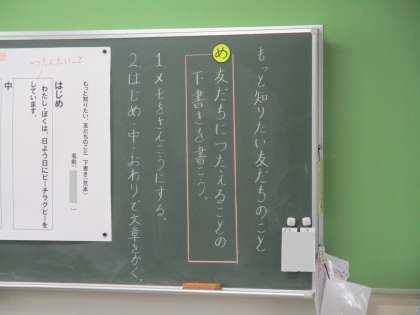 もっと知りたい友だちのこと
め
友だちにつたえることの
下書きを書こう。
1メモをさんこうにする。
2はじめ 中・おわりで文章をかく。
つたえたいこと
もっと知りたい、友だちのこと 下書き(見本)
名前(
)
はじめ
わたし・ぼくは、日よう日にビーチラグビーを
しています。
中